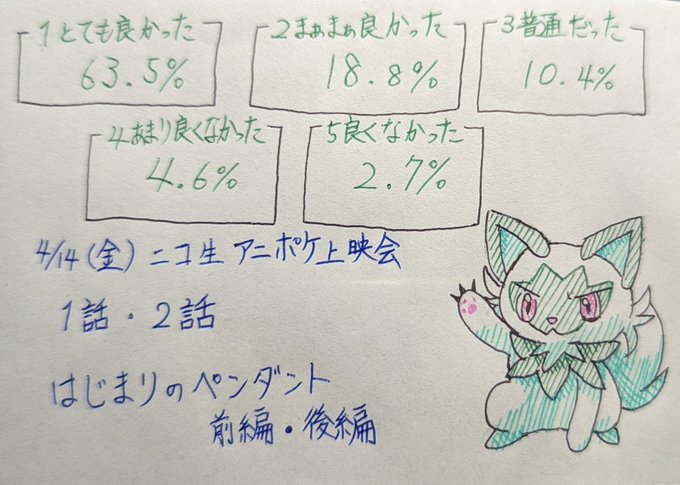 1とても良かった
63.5%
2まぁまぁ良かった
18.8%
3普通だった
10.4%
4あまり良くなかった
4.6%
5良くなかった
2.7%
4/14(金) ニコ生 アニポケ上映会
1話・2話
はじまりのペンダント
前編・後編